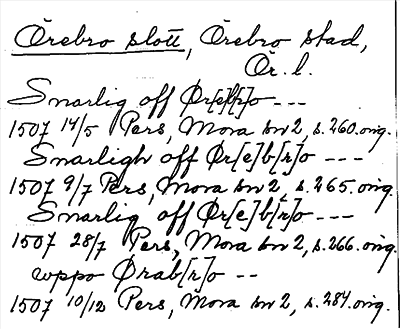 Örebro slott, Örebro stad,
Ör. l.
Snarlig off Ør[e]b[r]o ---
1507 14/5 Pers, Mora br 2, s. 260. orig.
Snarligh off Ør[e]b[r]o ---
1507 9/7 Pers, Mora br 2, s. 265. orig.
Snarlig off Ør[e]b[r]o ---
1507 28/7 Pers, Mora br 2, s. 266. orig.
wppo Ørab[r]o --
1507 10/12 Pers, Mora br 2, s. 284. orig.